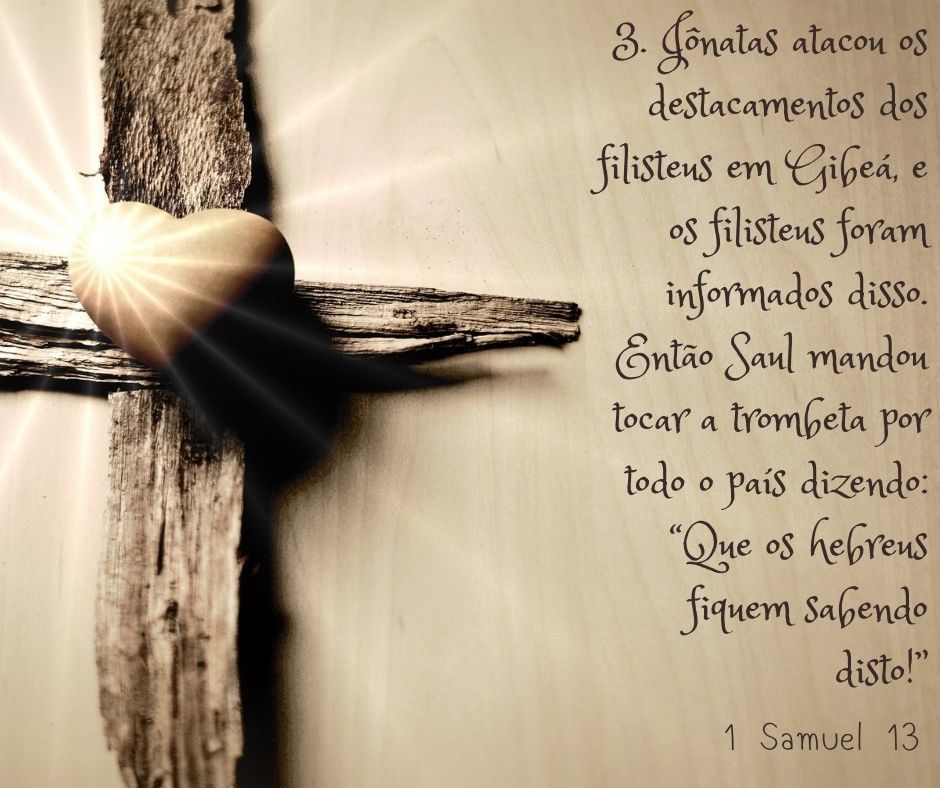 3. Jônatas atacou os
destacamentos dos
filisteus em Gibeá, e
os filisteus foram
informados disso.
Então Saul mandou
tocar a trombeta por
todo o país dizendo:
“Que os hebreus
fiquem sabendo
disto!”
1 Samuel 13